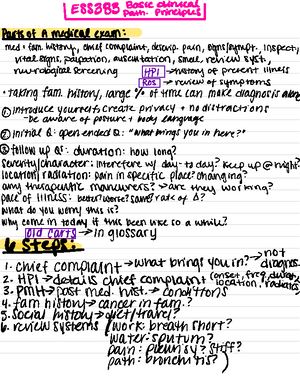 ESS385 Basic clinical
Path. Principles
Parts of A medical exam:
med + fam. history, chief complaint, descrip. pain, signs/sympt., inspect,
vital signs, palpation, auscultation, smell, review syst.,
neurological screening HPI → history of present illness
ROS → review of symptoms
• taking fam. history, large % of time can make diagnosis alone
① introduce yourself, create privacy + no distractions
- be aware of posture + body language
② initial Q: open ended Q: "what brings you in here?"
③ follow up Qs: duration: how long?
severity/character: interefere w/ day-to day? keep up @ night?
location/radiation: pain in specific place? changing?
any therapeutic maneuvers? → are they working?
pace of illness: better? worse? same rate of Δ?
What do you worry this is?
why come in today if this been like so a while?
Old carts → in glossary
6 Steps:
1. chief complaint → what brings you in? → not diagnos.
2. HPI → details chief complaint (onset, freq, durat.,
location, radiatn
3. PMH → past med. hist. → conditions
4. fam history → cancer in fam.?
5. Social history → diet/travel?
6. review systems (work breath short?
water: sputum?
pain: pleurisy? stiff?
path: bronchitis?)